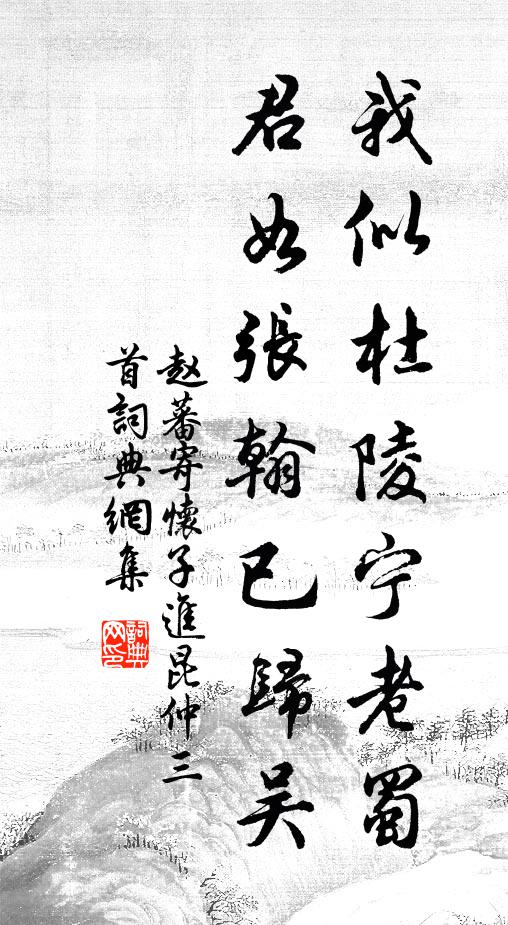 我似杜陵宁老蜀
君如張翰已歸吴
赵蕃寄懷子進昆仲三
首詞典網集
詞典
网印